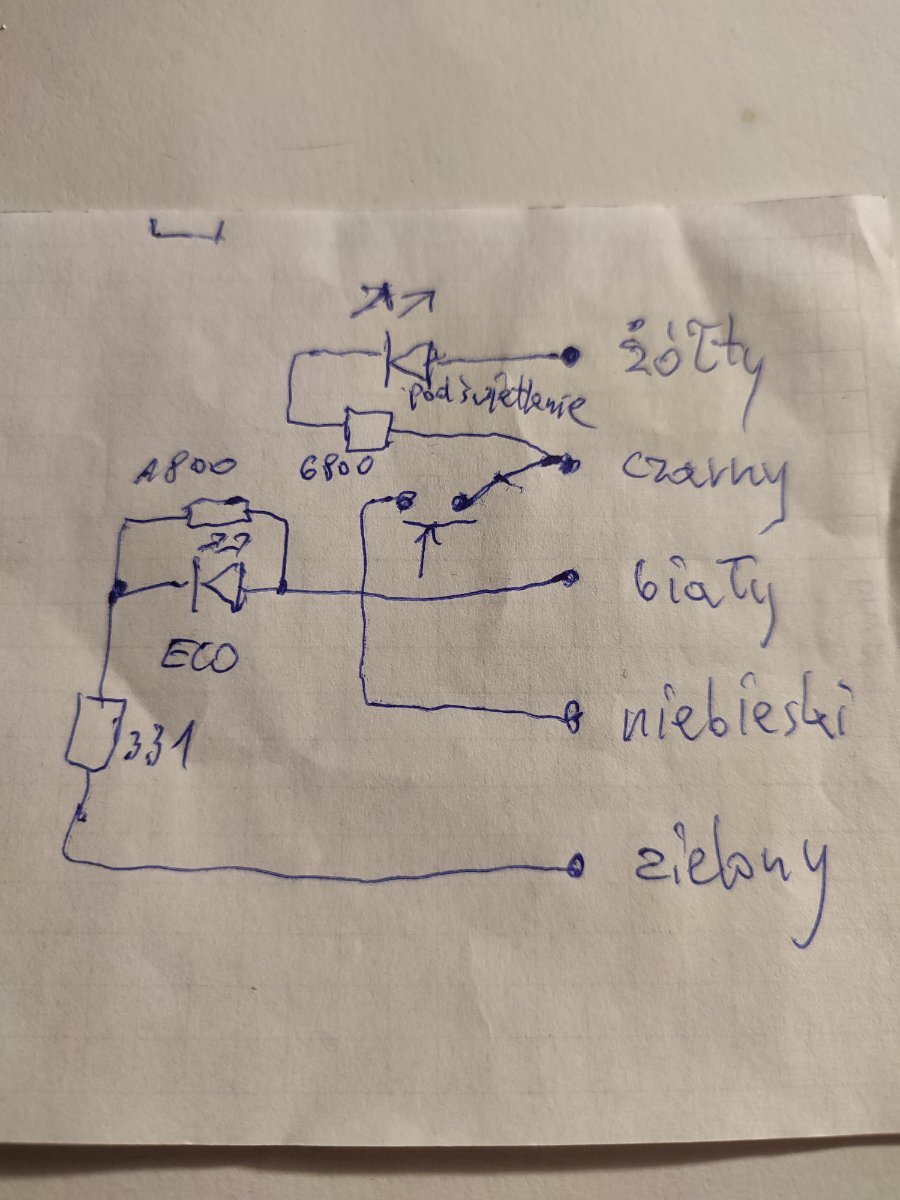 żółty
podświetlenie
czarny
6800
1800
biały
ECO
niebieski
331
zielony